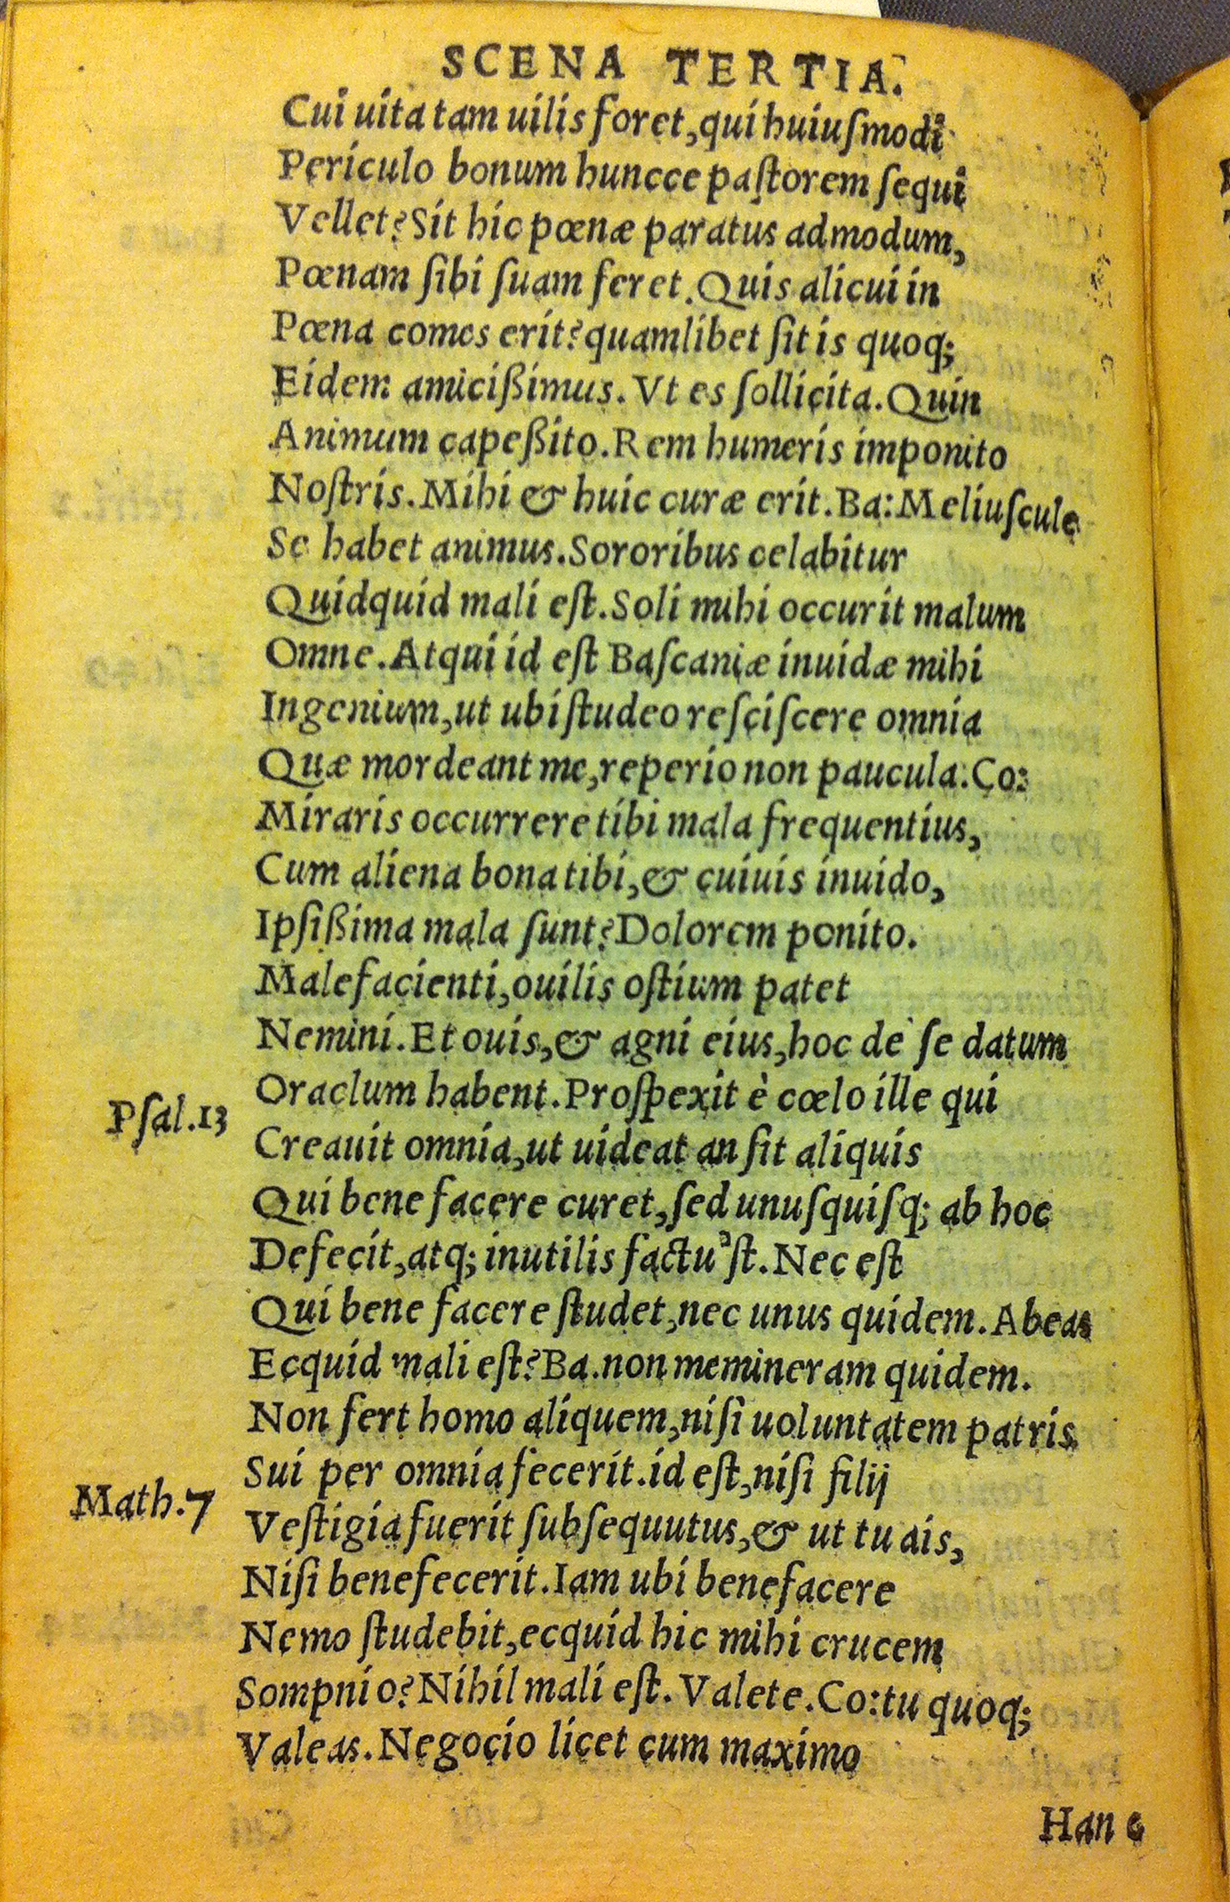 SCENA TERTIA.
Cui uita tam uilis foret, qui huiuſmodi
Periculo bonum huncce paſtorem ſequi
Vellet? Sit hic pœnæ paratus admodum,
Pœnam ſibi ſuam feret. Quis alicui in
Pœna comes erit? quamlibet ſit is quoq;
Eidem amicißimus. Vt es ſollicita. Quin
Animum capeßito. Rem humeris imponito
Noſtris. Mihi & huic curæ erit. Ba: Meliuſcule
Se habet animus. Sororibus celabitur
Quidquid mali eſt. Soli mihi occurit malum
Omne. Atqui id eſt Baſcaniæ inuidæ mihi
Ingenium, ut ubi ſtudeo reſciſcere omnia
Quæ mordeant me, reperio non paucula. Co:
Miraris occurrere tibi mala frequentius,
Cum aliena bona tibi, & cuiuis inuido,
Ipſißima mala ſunt? Dolorem ponito.
Malefacienti, ouilis oſtium patet
Nemini. Et ouis, & agni eius, hoc de ſe datum
Oraclum habent. Proſpexit è cœlo ille qui
Pſal.13
Creauit omnia, ut uideat an ſit aliquis
Qui bene facere curet, ſed unuſquiſq; ab hoc
Defecit, atq; inutilis factu'ſt. Nec eſt
Qui bene facere ſtudet, nec unus quidem. Abeas
Ecquid mali eſt? Ba. non memineram quidem.
Non fert homo aliquem, niſi uoluntatem patris
Sui per omnia fecerit. id eſt, niſi filij
Math.7
Veſtigia fuerit ſubſequutus, & ut tu ais,
Niſi benefecerit. Iam ubi benefacere
Nemo ſtudebit, ecquid hic mihi crucem
Sompnio? Nihil mali eſt. Valete. Co: tu quoq;
Valeas. Negocio licet cum maximo
Hanc